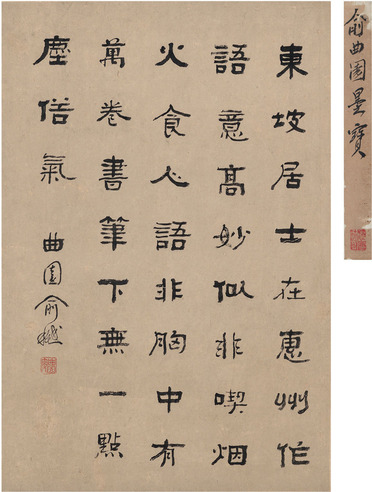 俞曲園墨寶
東坡居士在惠州作
語意高妙似非喫烟
火食人語非胸中有
萬卷書筆下無一點
塵俗氣
曲園俞樾